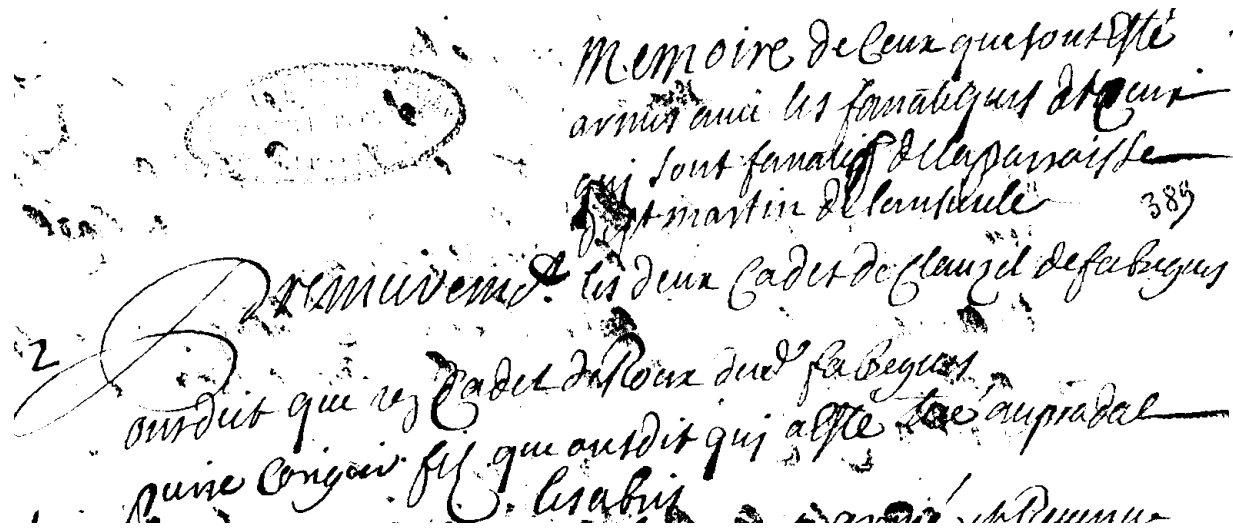 Memoire de Ceux que sont esté
armés avec les fanatiques et ceux
qui sont fanatiq de la parroisse
de st martin de lansuscle
389
Premierement les deux Cadet de Clauzel de fabregues
2
ont dit que Cadet de Roux dud fabregues
fils que ont dit qui a esté tué au pradal
les abris